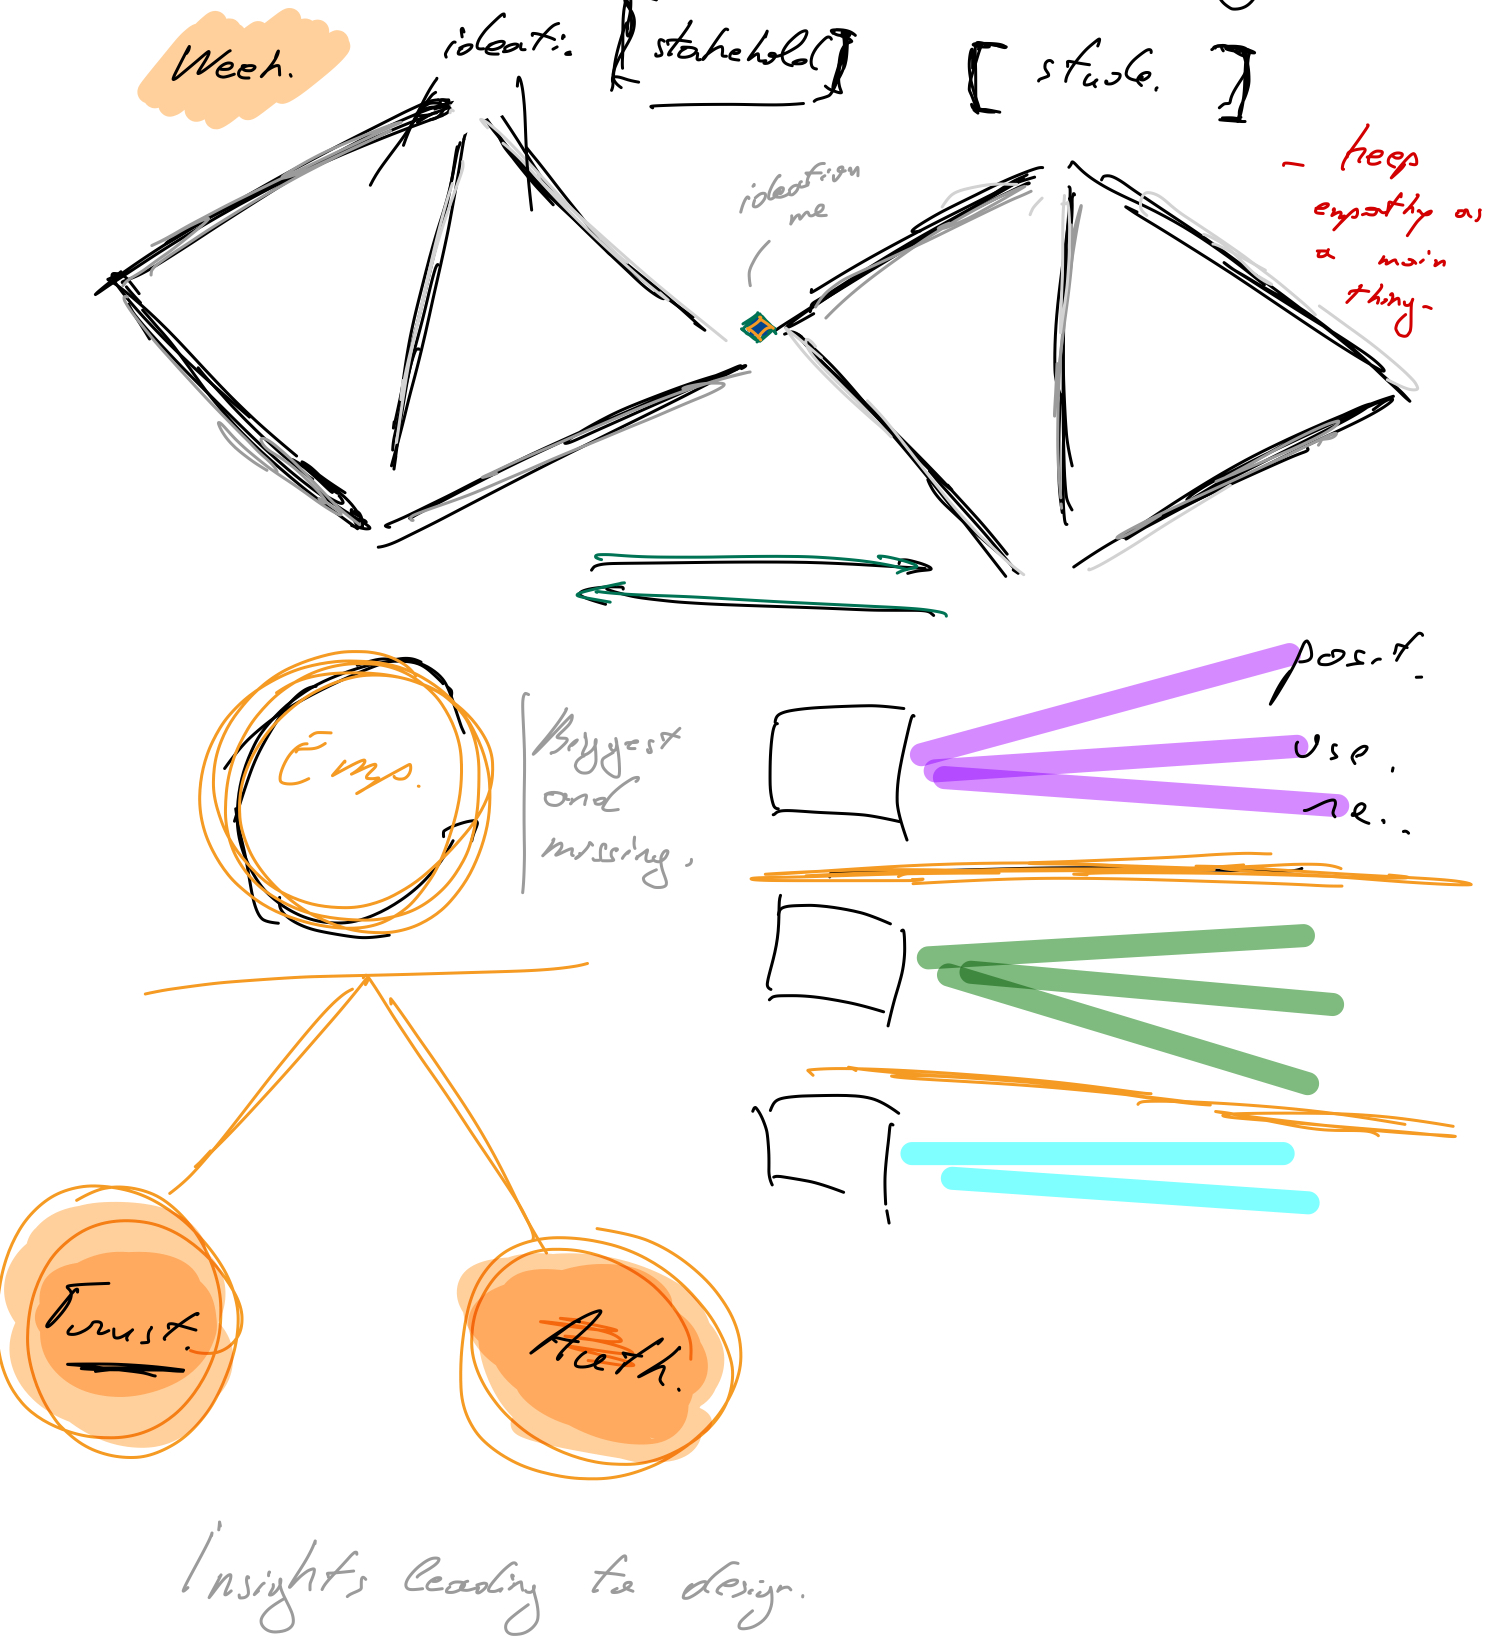 Week.
ideati.
[stakehold]
[ stude. ]
ideation
me
- keep
empathy as
a main
thing-
Emp.
Biggest
and
missing.
posit.
Use.
re..
Trust.
Auth.
Insights leading to design.